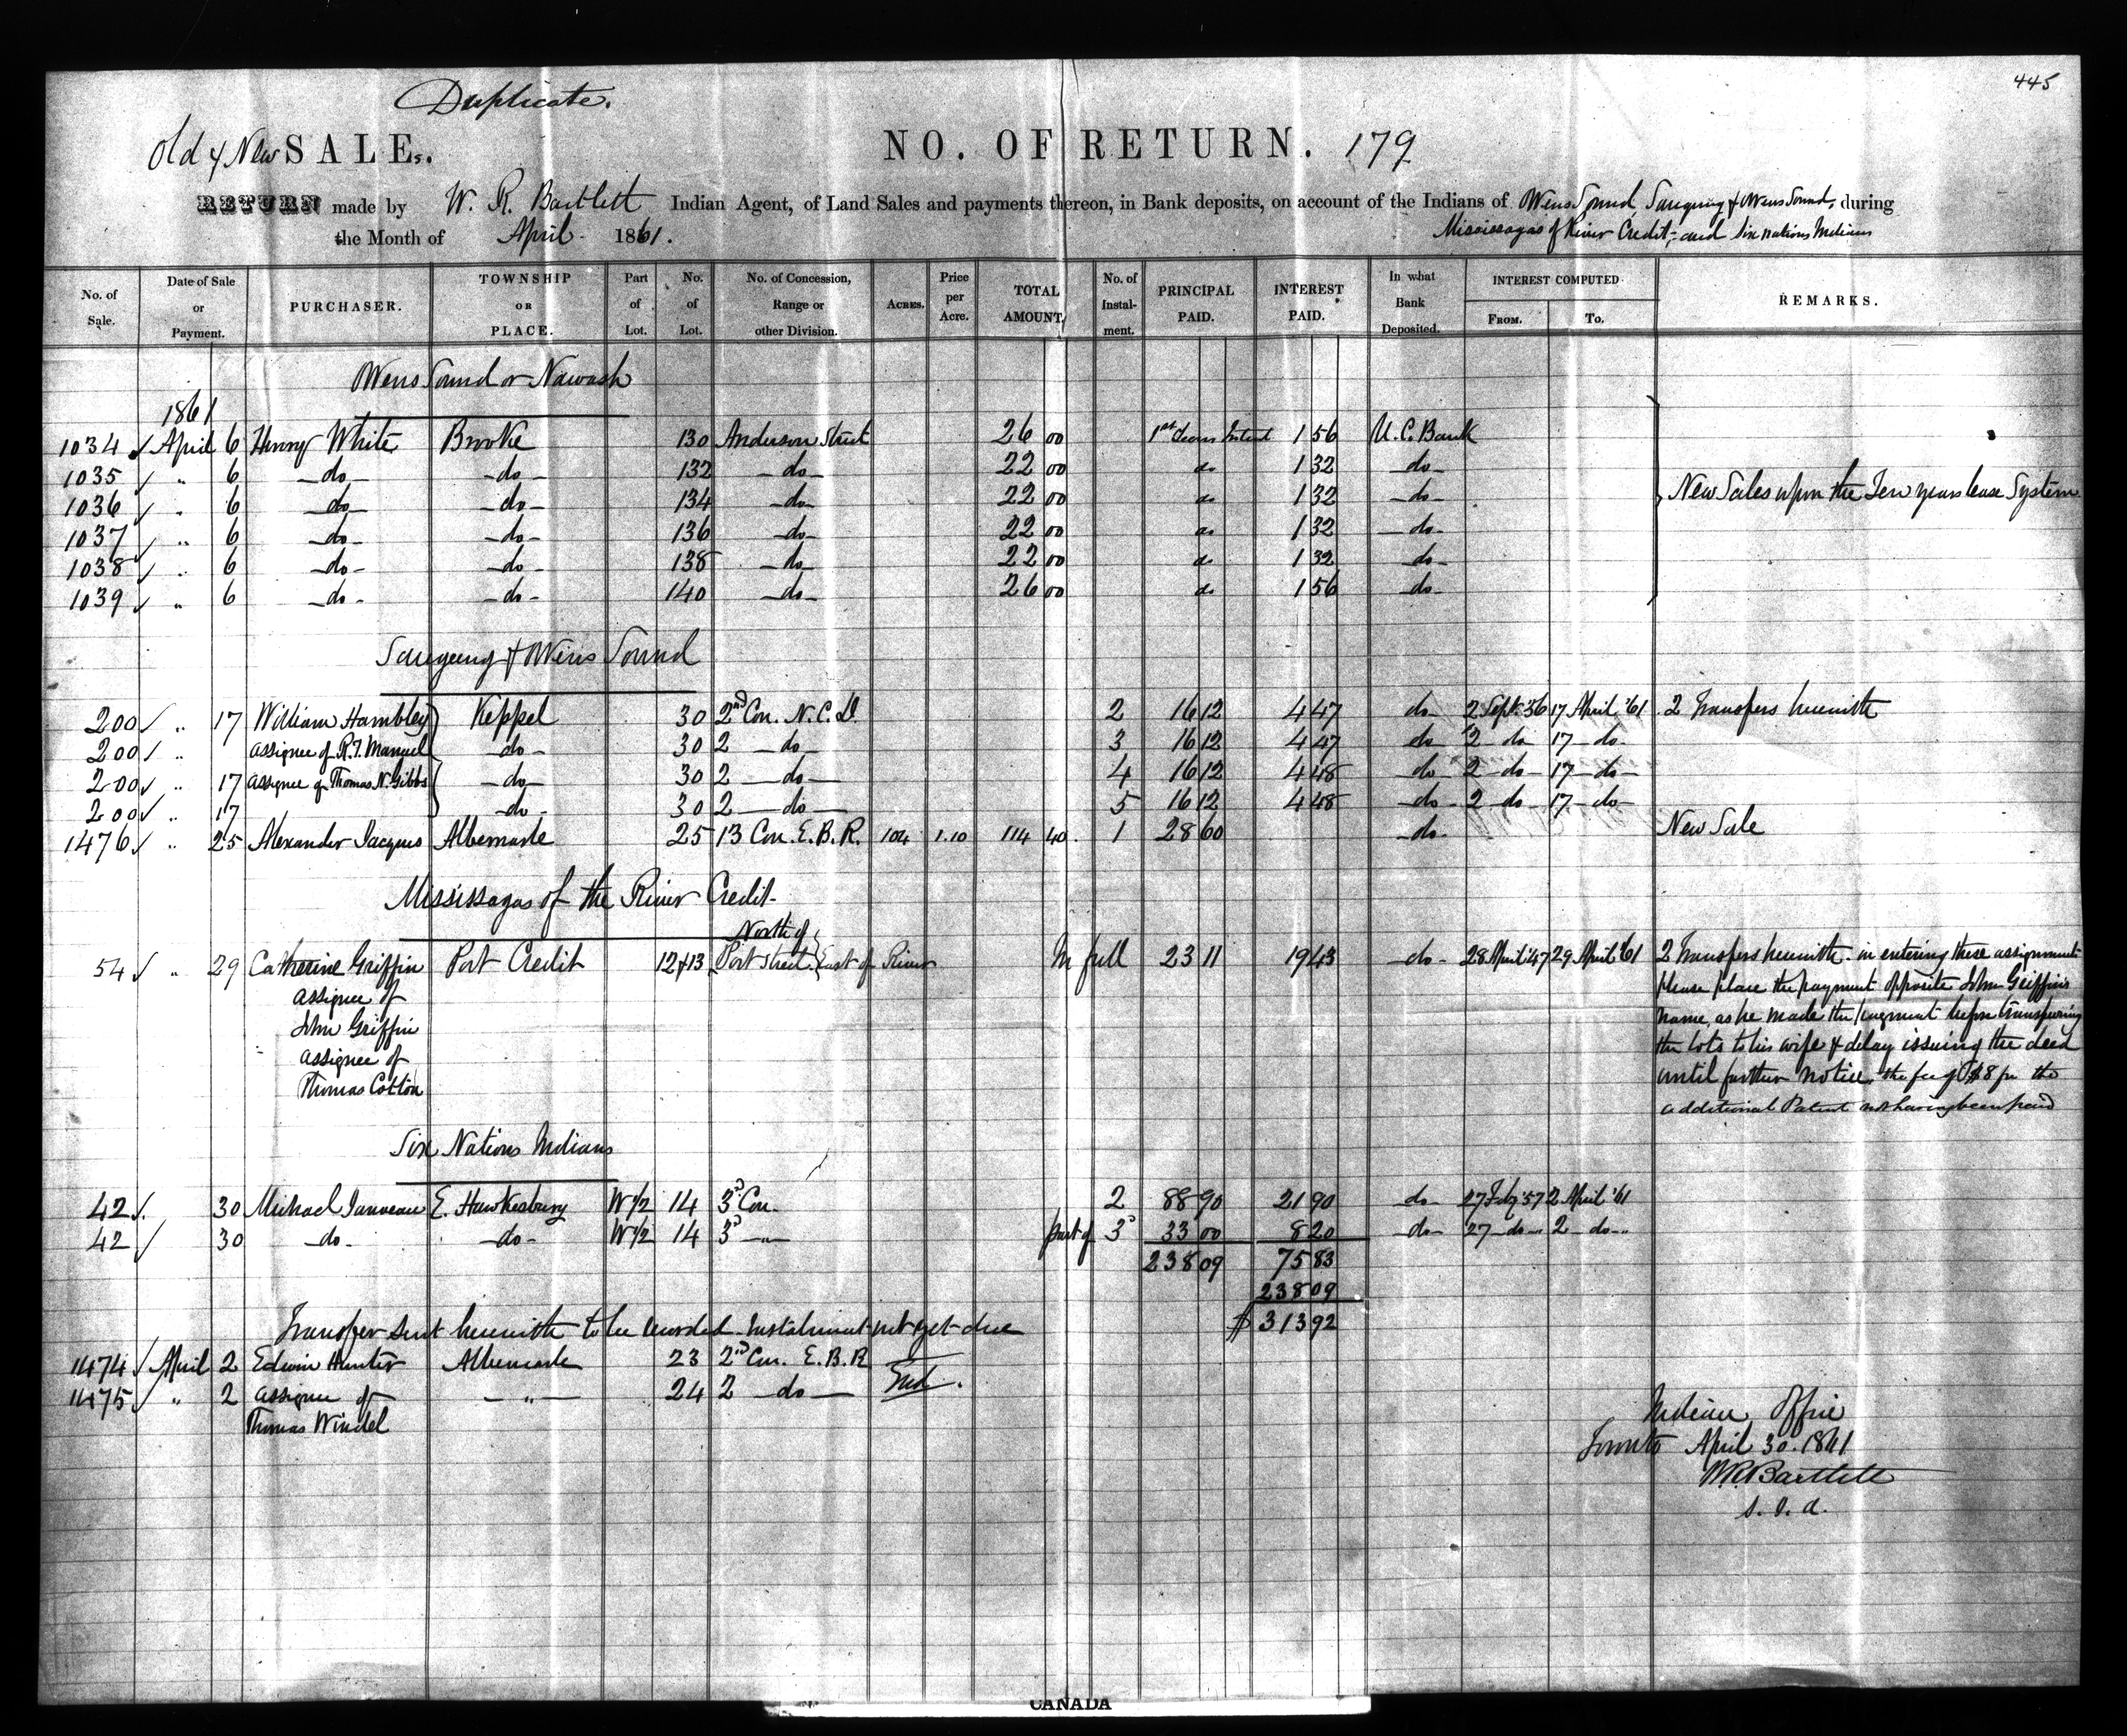 445
Duplicate.
Old & New SALEs. NO. OF RETURN. 179
RETURN made by W. R. Bartlett Indian Agent, of Land Sales and payments thereon, in Bank deposits, on account of the Indians of Owens Sound, Saugeeng & Owens Sound, during
the Month of April 1861. Mississagas of River Credit, and Six Nations Indians
No. of Sale. Date of Sale or Payment. PURCHASER. TOWNSHIP OR PLACE. Part of Lot. No. of Lot. No. of Concession, Range or other Division. ACRES. Price per Acre. TOTAL AMOUNT, No. of Instalment. PRINCIPAL PAID. INTEREST PAID. In what Bank Deposited. INTEREST COMPUTED FROM. To. REMARKS.
Owens Sound or Nawash
1861
1034 April 6 Henry White Brooke 130 Anderson Street 26 00 1st Years Intrest 1 56 U.C. Bank
1035 " 6 -do- -do- 132 -do- 22 00 do 1 32 -do-
1036 " 6 -do- -do- 134 -do- 22 00 do 1 32 -do- New Sales upon the Ten years lease System
1037 " 6 -do- -do- 136 -do- 22 00 do 1 32 -do-
1038 " 6 -do- -do- 138 -do- 22 00 do 1 32 -do-
1039 " 6 -do- -do- 140 -do- 26 00 do 1 56 -do-
Saugeeng & Owens Sound
200 " 17 William Hambley Keppel 30 2nd Con. N.C.D. 2 16 12 4 47 do- 2 Sept. '56 17 April '61 2 Transfers herewith
200 " assignee of R.T. Manuel -do- 30 2 -do- 3 16 12 4 47 do 2 do 17 -do-
200 " 17 assignee of Thomas N. Gibbs -do- 30 2 -do- 4 16 12 4 48 -do- 2 -do- 17 -do-
200 " 17 -do- 30 2 -do- 5 16 12 4 48 -do- 2 -do- 17 -do-
1476 " 25 Alexander Jacques Albemarle 25 13 Con. E.B.R. 104 1.10 114 40 1 28 60 -do- New Sale
Mississagas of the River Credit
North of
54 " 29 Catherine Griffin Port Credit 12 & 13 Port Street East of River In full 23 11 19 43 -do- 28 April '47 29 April '61 2 Transfers herewith. in entering these assignments
assignee of please place the payment opposite John Griffin's
John Griffin name, as he made the payment before transferring
assignee of the lots to his wife & delay issuing the deed
Thomas Cotton until further notice, the fee of $8 for the
additional Patent not having been paid
Six Nations Indians
42 30 Michael Janveau E. Hawkesbury W 1/2 14 3d Con. 2 88 90 21 90 do- 27 Feby '57 2 April '61
42 30 -do- -do- W 1/2 14 3d -"- part of 3d 33 00 8 20 -do- 27 -do- 2 -do-
238 09 75 83
238 09
$ 313 92
Transfer sent herewith to be recorded. Instalment not yet due
1474 April 2 Edwin Hunter Albemarle 23 2nd Con. E.B.R
1475 " 2 assignee of -"- 24 2 -do- End.
Thomas Windel
Indian Office
Toronto April 30. 1861
W.R. Bartlett
S. I. A.
CANADA